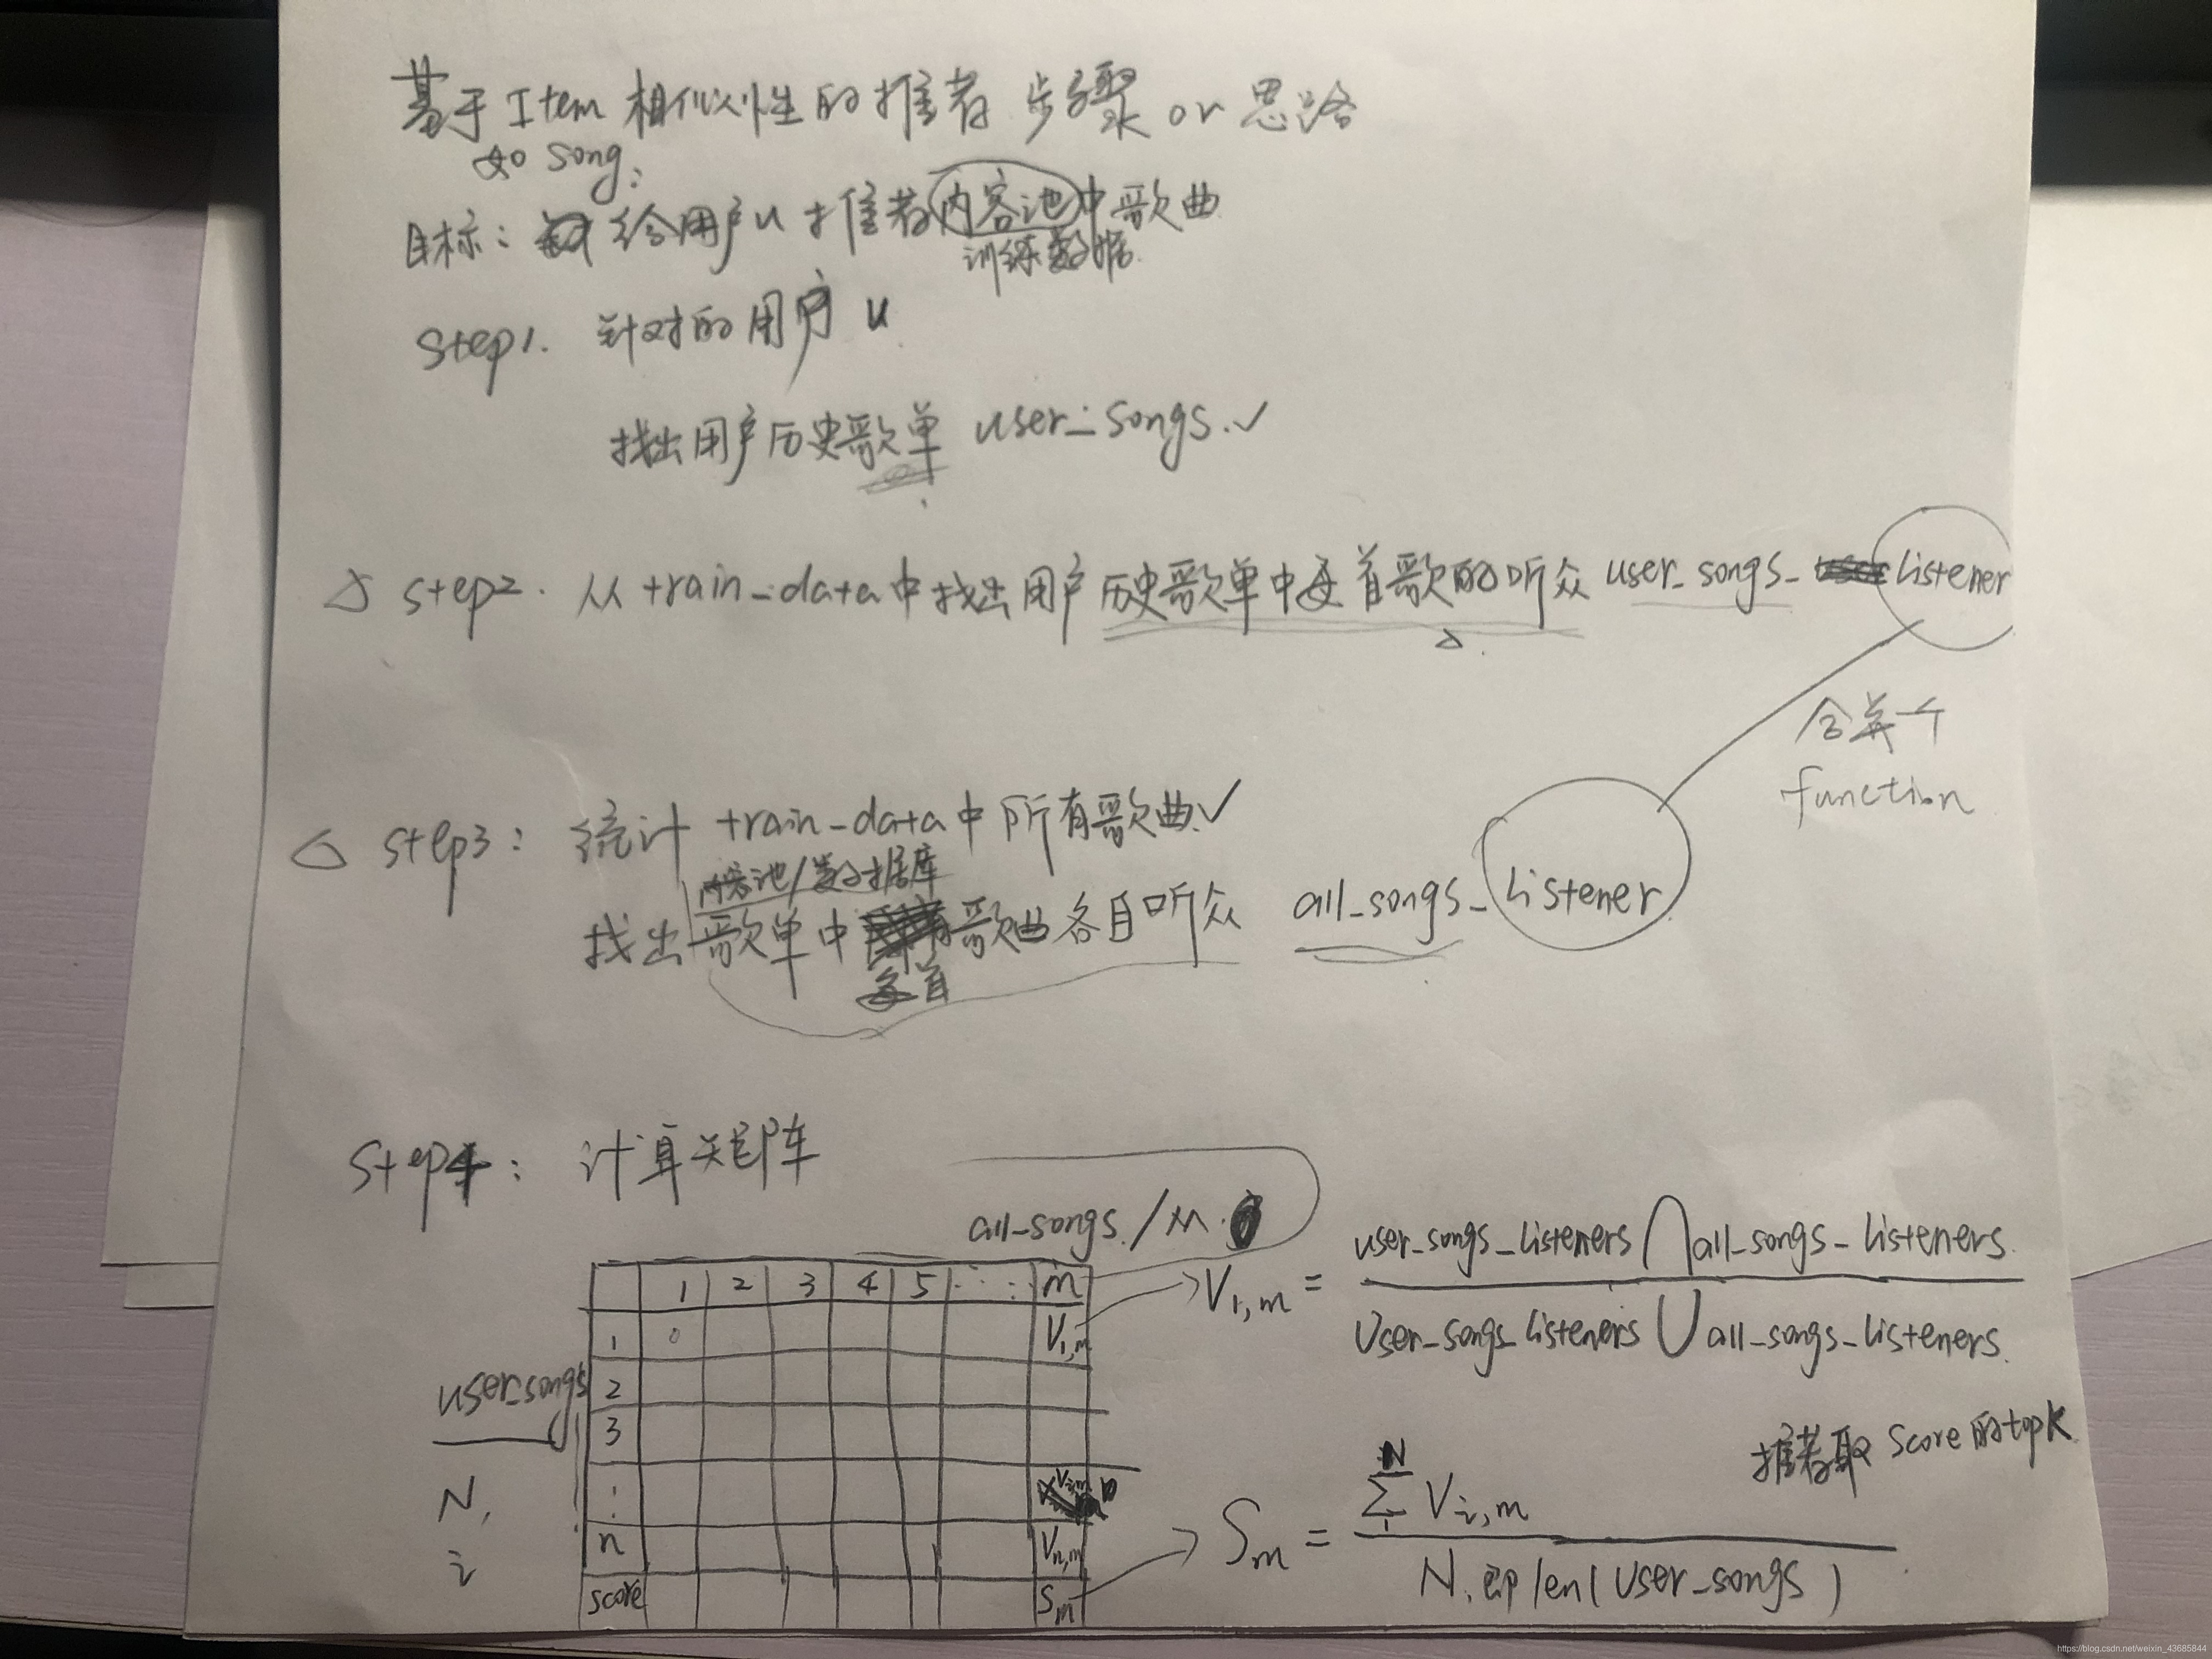 基于Item相似性的推荐 步骤 or 思路
如song:
目标: 给用户u推荐内容池中歌曲
训练数据
Step1. 针对的用户 u
找出用户历史歌单 user_songs.✓
△ step2. 从train_data中找出用户历史歌单中每首歌的听众 user_songs_listener
function
△ step3: 统计 train_data中所有歌曲✓
内容池/数据库
找出歌单中歌曲各自听众 all_songs_listener
每首
Step4: 计算矩阵
all_songs./M.
1 2 3 4 5 ... m
1 0 V1,m
user_songs
2
3
N,
i
n Vn,m
score Sm
V1,m = user_songs_listeners ⋂ all_songs_listeners.
User_songs_listeners ⋃ all_songs_listeners.
推荐取 Score的topK
Sm = N Σ 1 Vi,m
N,即len(user_songs)
https://blog.csdn.net/weixin_43685844